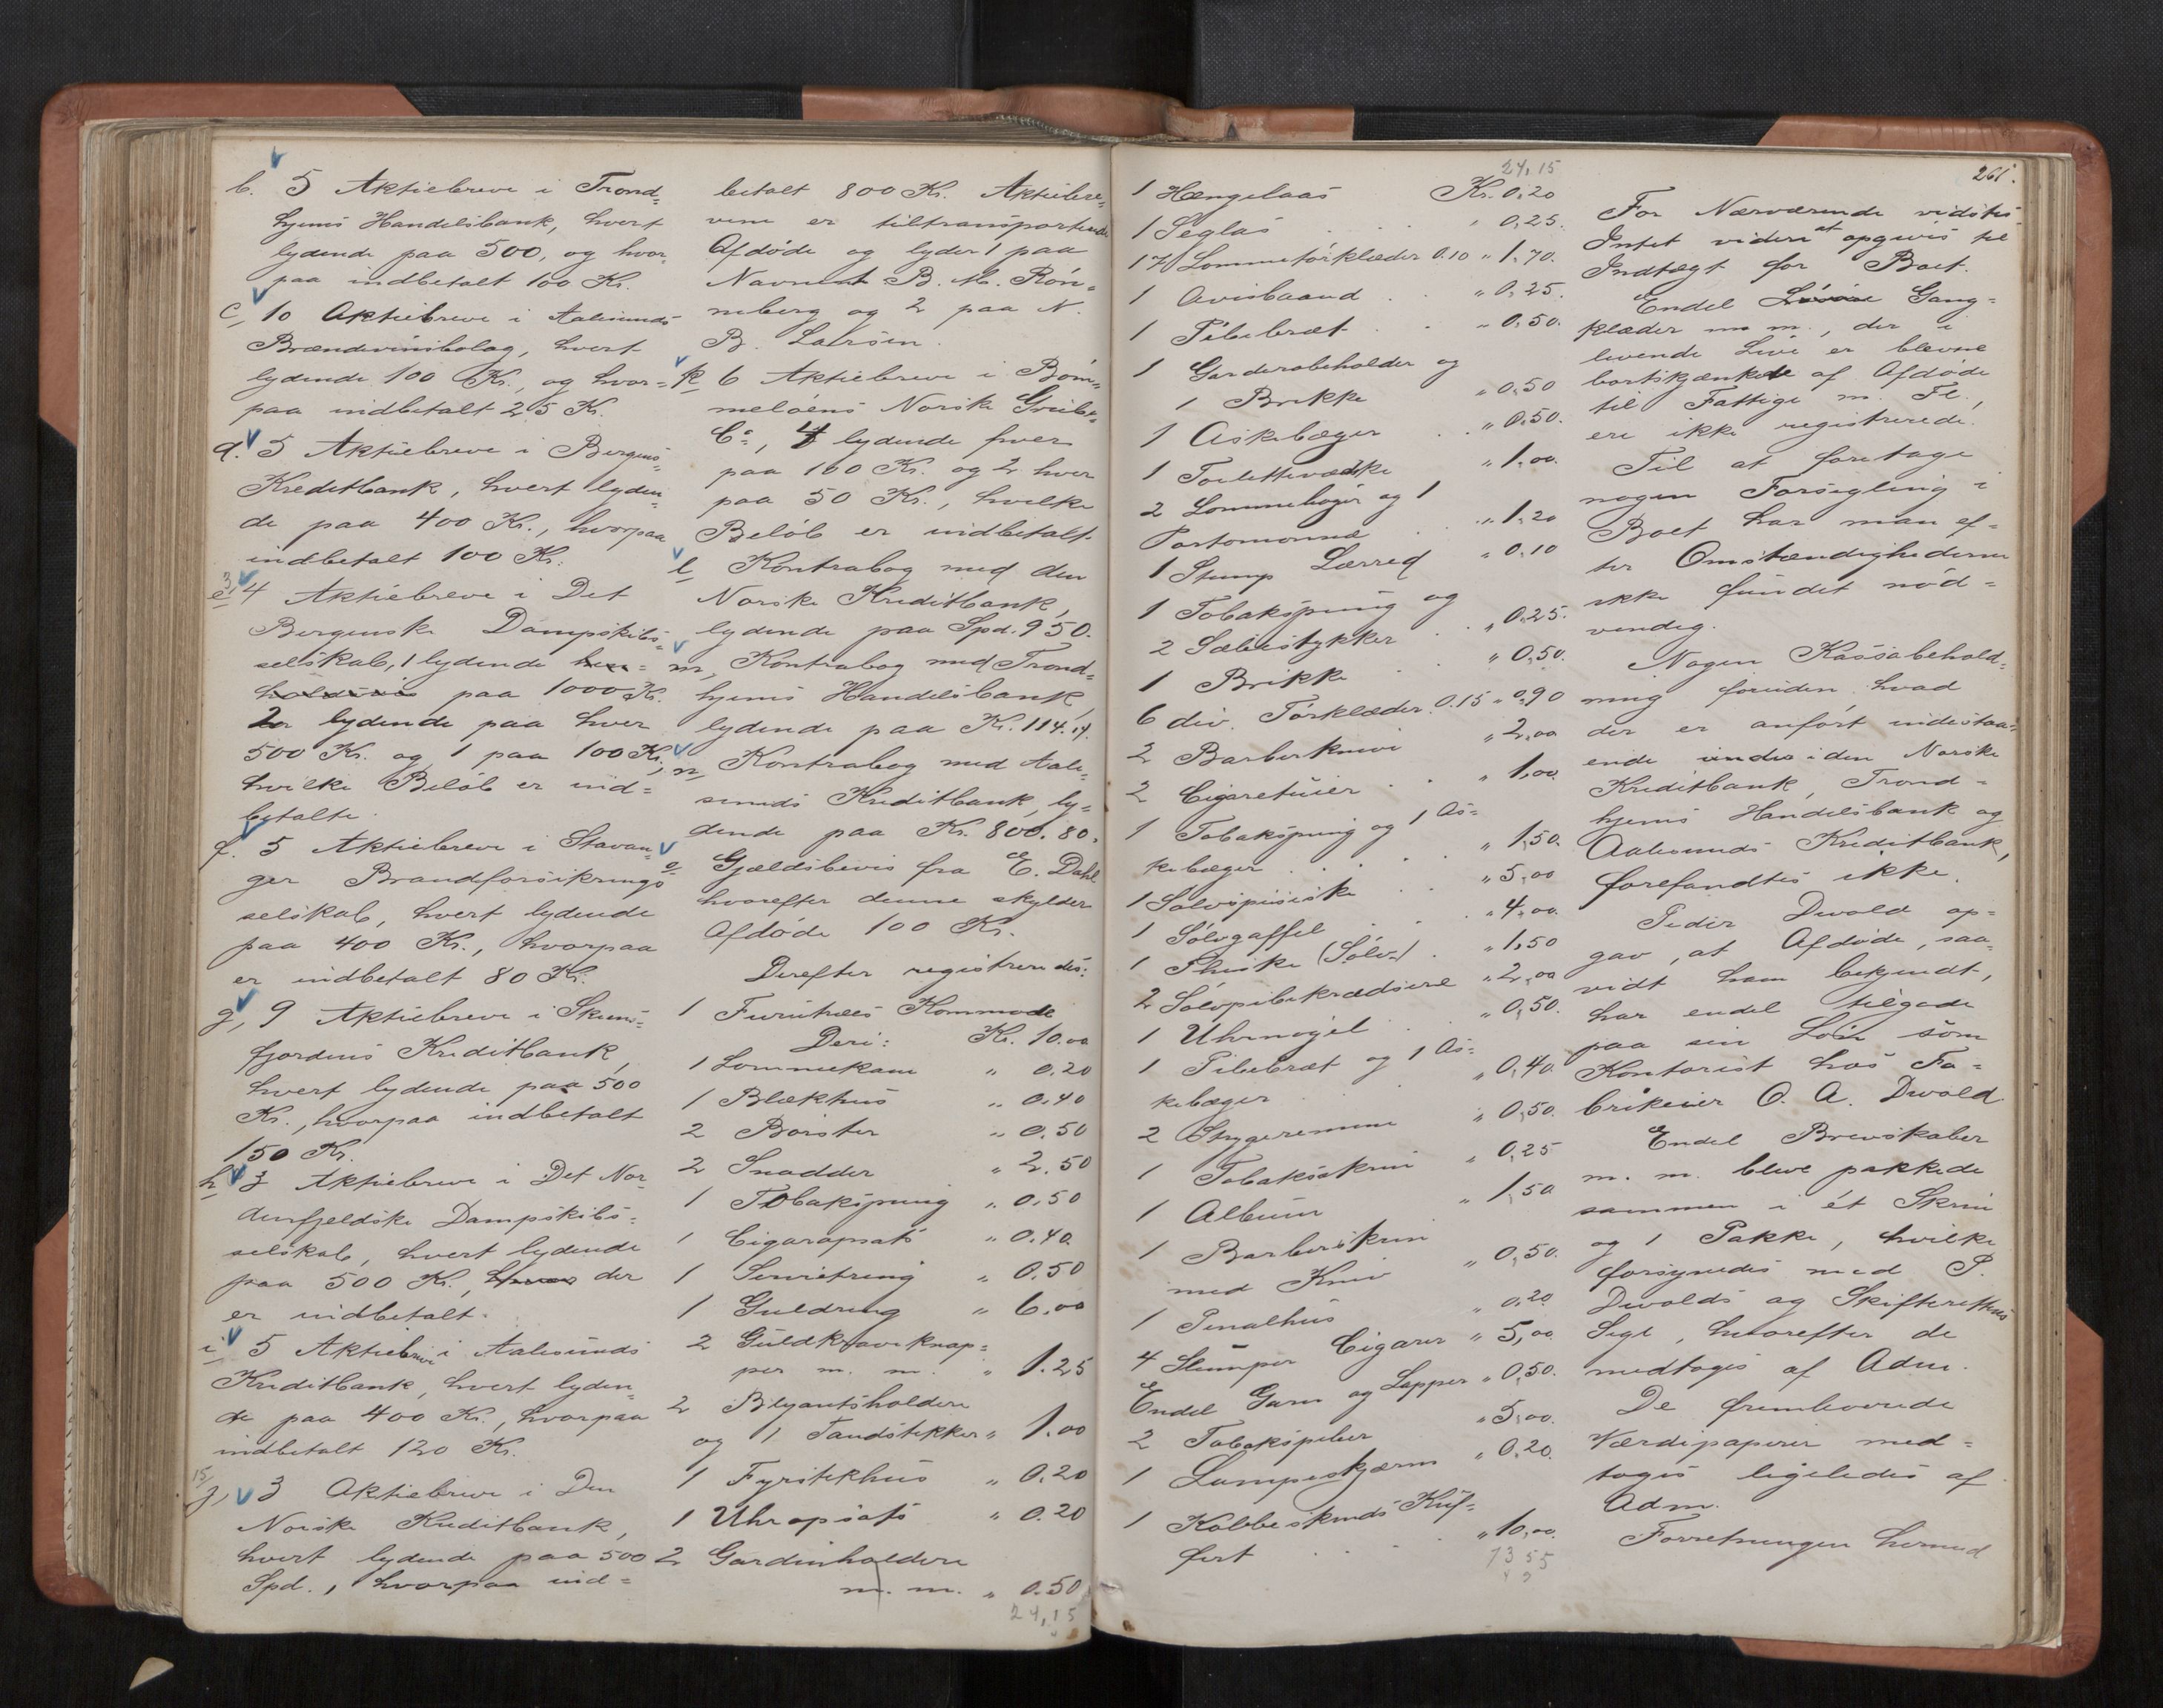 b. 5 Aktiebreve i Trond-
hjems Handelsbank, hvert
lydende paa 500, og hvor-
paa indbetalt 100 Kr.
c, 10 Aktiebreve i Aalesunds
Brændevinsbolag, hvert
lydende 100 Kr., og hvor-
paa indbetalt 25 Kr.
d. 5 Aktiebreve i Bergens
Kreditbank, hvert lyden-
de paa 400 Kr., hvorpaa
indbetalt 100 Kr.
e, 4 Aktiebreve i Det
Bergenske Dampskibs-
selskab, 1 lydende
paa 1000 Kr.
2 lydende paa hver
500 Kr. og 1 paa 100 Kr.,
hvilke Beløb er ind-
betalte.
f. 5 Aktiebreve i Stavan-
ger Brandforsikrings
selskab, hvert lydende
paa 400 Kr., hvorpaa
er indbetalt 80 Kr.
g, 9 Aktiebreve i Skiens-
fjordens Kreditbank,
hvert lydende paa 500
Kr., hvorpaa indbetalt
150 Kr.
h 3 Aktiebreve i Det Nor-
denfjeldske Dampskibs-
selskab, hvert lydende
paa 500 Kr., der
er indbetalt.
i 5 Aktiebreve i Aalesunds
Kreditbank, hvert lyden-
de paa 400 Kr., hvorpaa
indbetalt 120 Kr.
15/
j, 3 Aktiebreve i Den
Norske Kreditbank,
hvert lydende paa 500
Spd., hvorpaa ind-
betalt 800 Kr. Aktiebre-
vene er tiltransporterede
Afdøde og lyder 1 paa
Navnet B. M. Røn-
neberg og 2 paa N.
B. Larsen.
k 6 Aktiebreve i Bøm-
meløens Norske Grube
Co, 4 lydende hver
paa 100 Kr. og 2 hver
paa 50 Kr., hvilke
Beløb er indbetalt.
l Kontrabog med den
Norske Kreditbank,
lydende paa Spd. 950.
m, Kontrabog med Trond-
hjems Handelsbank,
lydende paa Kr. 114.14.
n, Kontrabog med Aale-
sunds Kreditbank, ly-
dende paa Kr. 800.80.
o Gjældsbevis fra E. Dahl
hvorefter denne skylder
Afdøde 100 Kr.
Derefter registreredes:
1 Furutræs Kommode
Deri: Kr. 10.00
1 Lommekam " 0.20
1 Blækhus " 0.40
2 Børster " 0.50
2 Snadder " 2.50
1 Tobakspung " 0.50
1 Cigaropsats " 0.40
1 Servietring " 0.50
1 Guldring " 6.00
2 Guldkraveknap-
per m. m. " 1.25
2 Blyantsholdere
og 1 Tandstikker " 1.00
1 Fyrstikhus " 0.20
1 Uhropsats " 0.20
2 Gardinholdere
m. m. " 0.50
24,15
24,15
1 Hængelaas Kr. 0,20
1 Seglas " 0,25.
17 Lommetørklæder 0.10 " 1,70.
1 Avisbaand " 0,25.
1 Pibebræt " 0,50.
1 Garderobeholder og
1 Brikke " 0,50
1 Askebæger " 0,50.
1 Toilettevæske " 1,00.
2 Lommebøger og 1
Portomonnæ " 1,20
1 Stump Lærred " 0,10
1 Tobakspung og
2 Sæbestykker " 0,25.
1 Brikke " 0,50.
6 div. Tørklæder 0.15 " 0,90
2 Barberknive " 2,00
2 Cigaretuier " 1,00.
1 Tobakspung og 1 As-
kebæger " 1,50.
1 Sølvspiseske " 5,00
1 Sølvgaffel " 4,00.
1 Theske (Sølv) " 1,50
2 Sølvpibekradsere " 2,00
1 Uhrnøgel " 0,50.
1 Pibebræt og 1 As-
kebæger " 0,40.
2 Strygeremme " 0,50.
1 Tobaksskrin " 0,25
1 Album " 1,50
1 Barberskrin
med Kniv " 0,50.
1 Penalhus " 0,20.
4 Stumper Cigarer " 5,00.
Endel Garn og Lapper " 0,50.
2 Tobakspiber " 5,00.
1 Lampeskjærm " 0,20.
1 Kobbeskinds Kuf-
fert " 10,00.
73 55
261.
For Nærværende vidstes
Intet videre at opgives til
Indtægt for Boet.
Endel Gang-
klæder m. m., der i
levende Live er blevne
bortskjænkede af Afdøde
til Fattige m. Fl.,
ere ikke registrerede.
Til at foretage
nogen Forsegling i
Boet har man ef-
ter Omstændighederne
ikke fundet nød-
vendig.
Nogen Kassabehold-
ning foruden hvad
der er anført indestaa-
ende i den Norske
Kreditbank, Trond-
hjems Handelsbank og
Aalesunds Kreditbank,
forefandtes ikke.
Peder Devold op-
gav, at Afdøde, saa-
vidt ham bekjendt,
har endel tilgode
paa sin Løn som
Kontorist hos Fa-
brikeier O. A. Devold.
Endel Brevskaber
m. m. bleve pakkede
sammen i ét Skrin
og 1 Pakke, hvilke
forsynedes med P.
Devolds og Skifterettens
Segl, hvorefter de
medtoges af Adm.
De fremlevende
Værdipapirer med-
toges ligeledes af
Adm.
Forretningen hermed